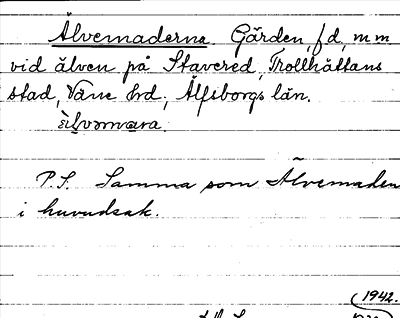 Älvemaderna. Gärden, f d, m m
vid älven på Stavered, Trollhättans
stad, Väne hrd, Älfsborgs län.
P.S. Samma som Älvemaden
i huvudsak.
1942.